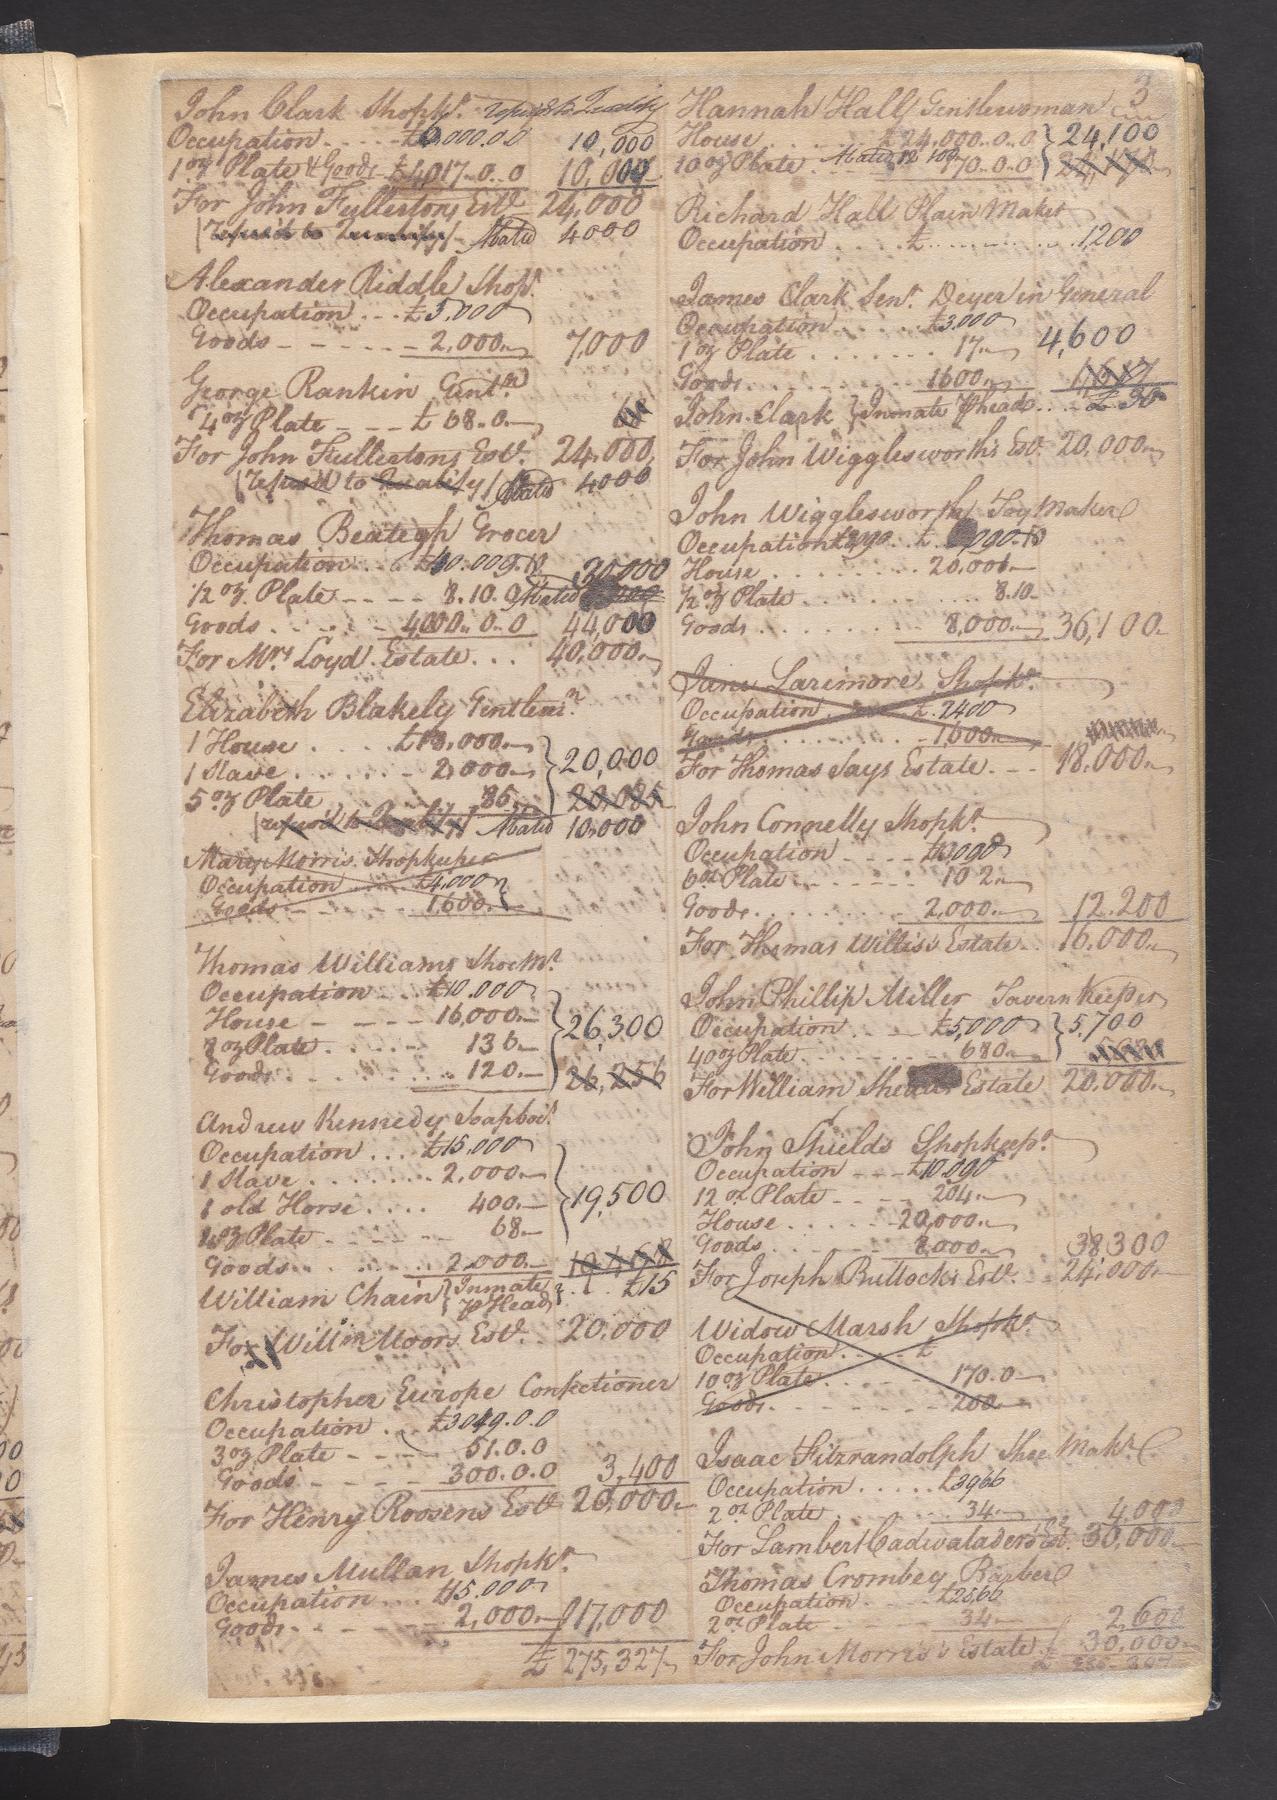 3
John Clark Shopkr. refused to Qualify
Occupation £6,000.0.0 10,000
1 oz Plate & Goods £4,017..0..0 10,000
For John Fullertons Estt. 24,000
(Refused to Qualify) Abated 4000
Alexander Riddle Shopr.
Occupation £5,000
Goods 2,000 7,000
George Rankin Gentn.
4 oz Plate £68.0. 68
For John Fullertons Estt. 24,000
(Refused to Qualify) Abated 4000
Thomas Beategh Grocer
Occupation 30,000
1/2 oz Plate 8.10.0 Abated
Goods 4000..0..0 44,000
For Mrs. Loyd Estate 40,000
Elizabeth Blakely
1 House £18,000
1 Slave 2,000 20,000
5 oz Plate 85 20,085
(refused to Qualify) Abated 10,000
Mary Morris Shopkeeper
Occupation £4,000
Goods 1,600
Thomas Williams Shoemr.
Occupation £10.000
House 16,000 26,300
8 oz Plate 136
Goods 120 26,256
Andrew Kennedy Soapboilr.
Occupation £15,000
1 Slave 2,000
1 old Horse 400 19,500
4 oz Plate 68
Goods 2,000 19,468
William Chain Inmate £15
pr Head
For Willm Moors Estt. 20,000
Christopher Europe Confectioner
Occupation £3049.0.0
3 oz Plate 51.0.0
Goods 300.0.0 3,400
For Henry Roosens Estt. 20,000
James Mullan Shopkr.
Occupation £15.000
Goods 2,000 17,000
£ 275,327
Hannah Hall Gentlewoman
House £24,000..0..0 24,100
10 oz Plate Abated 170..0..0 24,170
Richard Hall Plain Maker
Occupation £ 1200
James Clark Senr. Deyer in General
Occupation £3,000
1 oz Plate 17 4,600
Goods 1600 4,617
John Clark Inmate pr head £30
For John Wigglesworths Estt. 20,000
John Wigglesworth Toy Maker
Occupation
House 20,000
1/2 oz Plate 8.10
Goods 8,000 36,100
Jane Larimore Shopkr.
Occupation £ 2400
Goods 1,600
For Thomas Says Estate 18,000
John Connelly Shopkr.
Occupation
6 oz Plate 102
Goods 2,000 12,200
For Thomas Willis's Estate 16,000
John Phillip Miller Tavern Keeper
Occupation £5,000 5,700
40 oz Plate 680
For William Estate 20,000
John Shields Shopkeepr.
Occupation £10,090
12 oz Plate 204
House 20,000
Goods 8,000 38,300
For Joseph Bullocks Estt. 24,000
Widow Marsh Shopkr.
Occupation £
10 oz Plate 170.0
Goods 200
Isaac Fitzrandolph Shoe Makr.
Occupation £3966
2 oz Plate 34 4,000
For Lambert Cadwaladers Est. 30,000
Thomas Crombey Barber
Occupation £2566
2 oz Plate 34 2,600
For John Morris's Estate 30,000